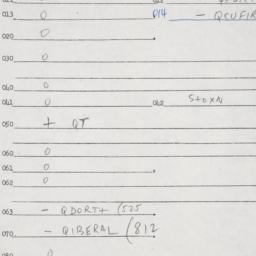 013 0 014 - QCUFIR
020 0
030 0
040 0
041 0 042 StoXN
050 + QT
060 0
061 0
062 0
063 - QDORT+ (525
070 - QIBERAL (812
080 0